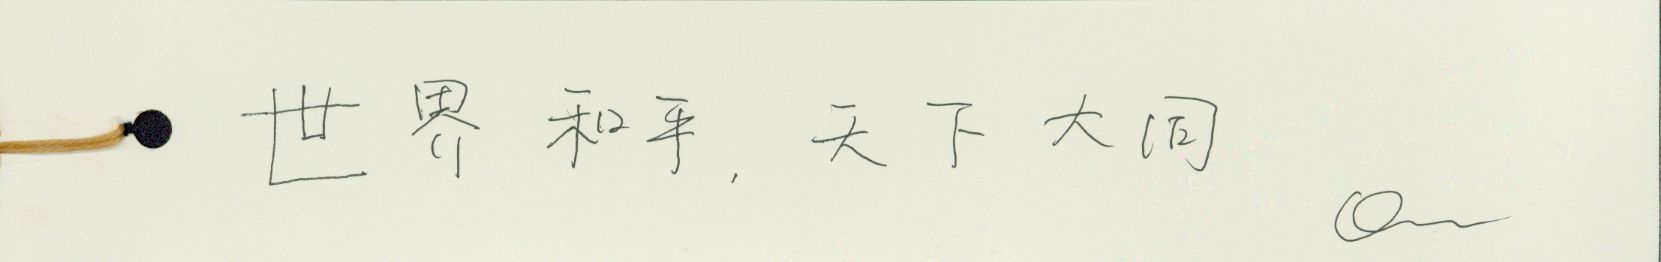 世界和平,天下大同